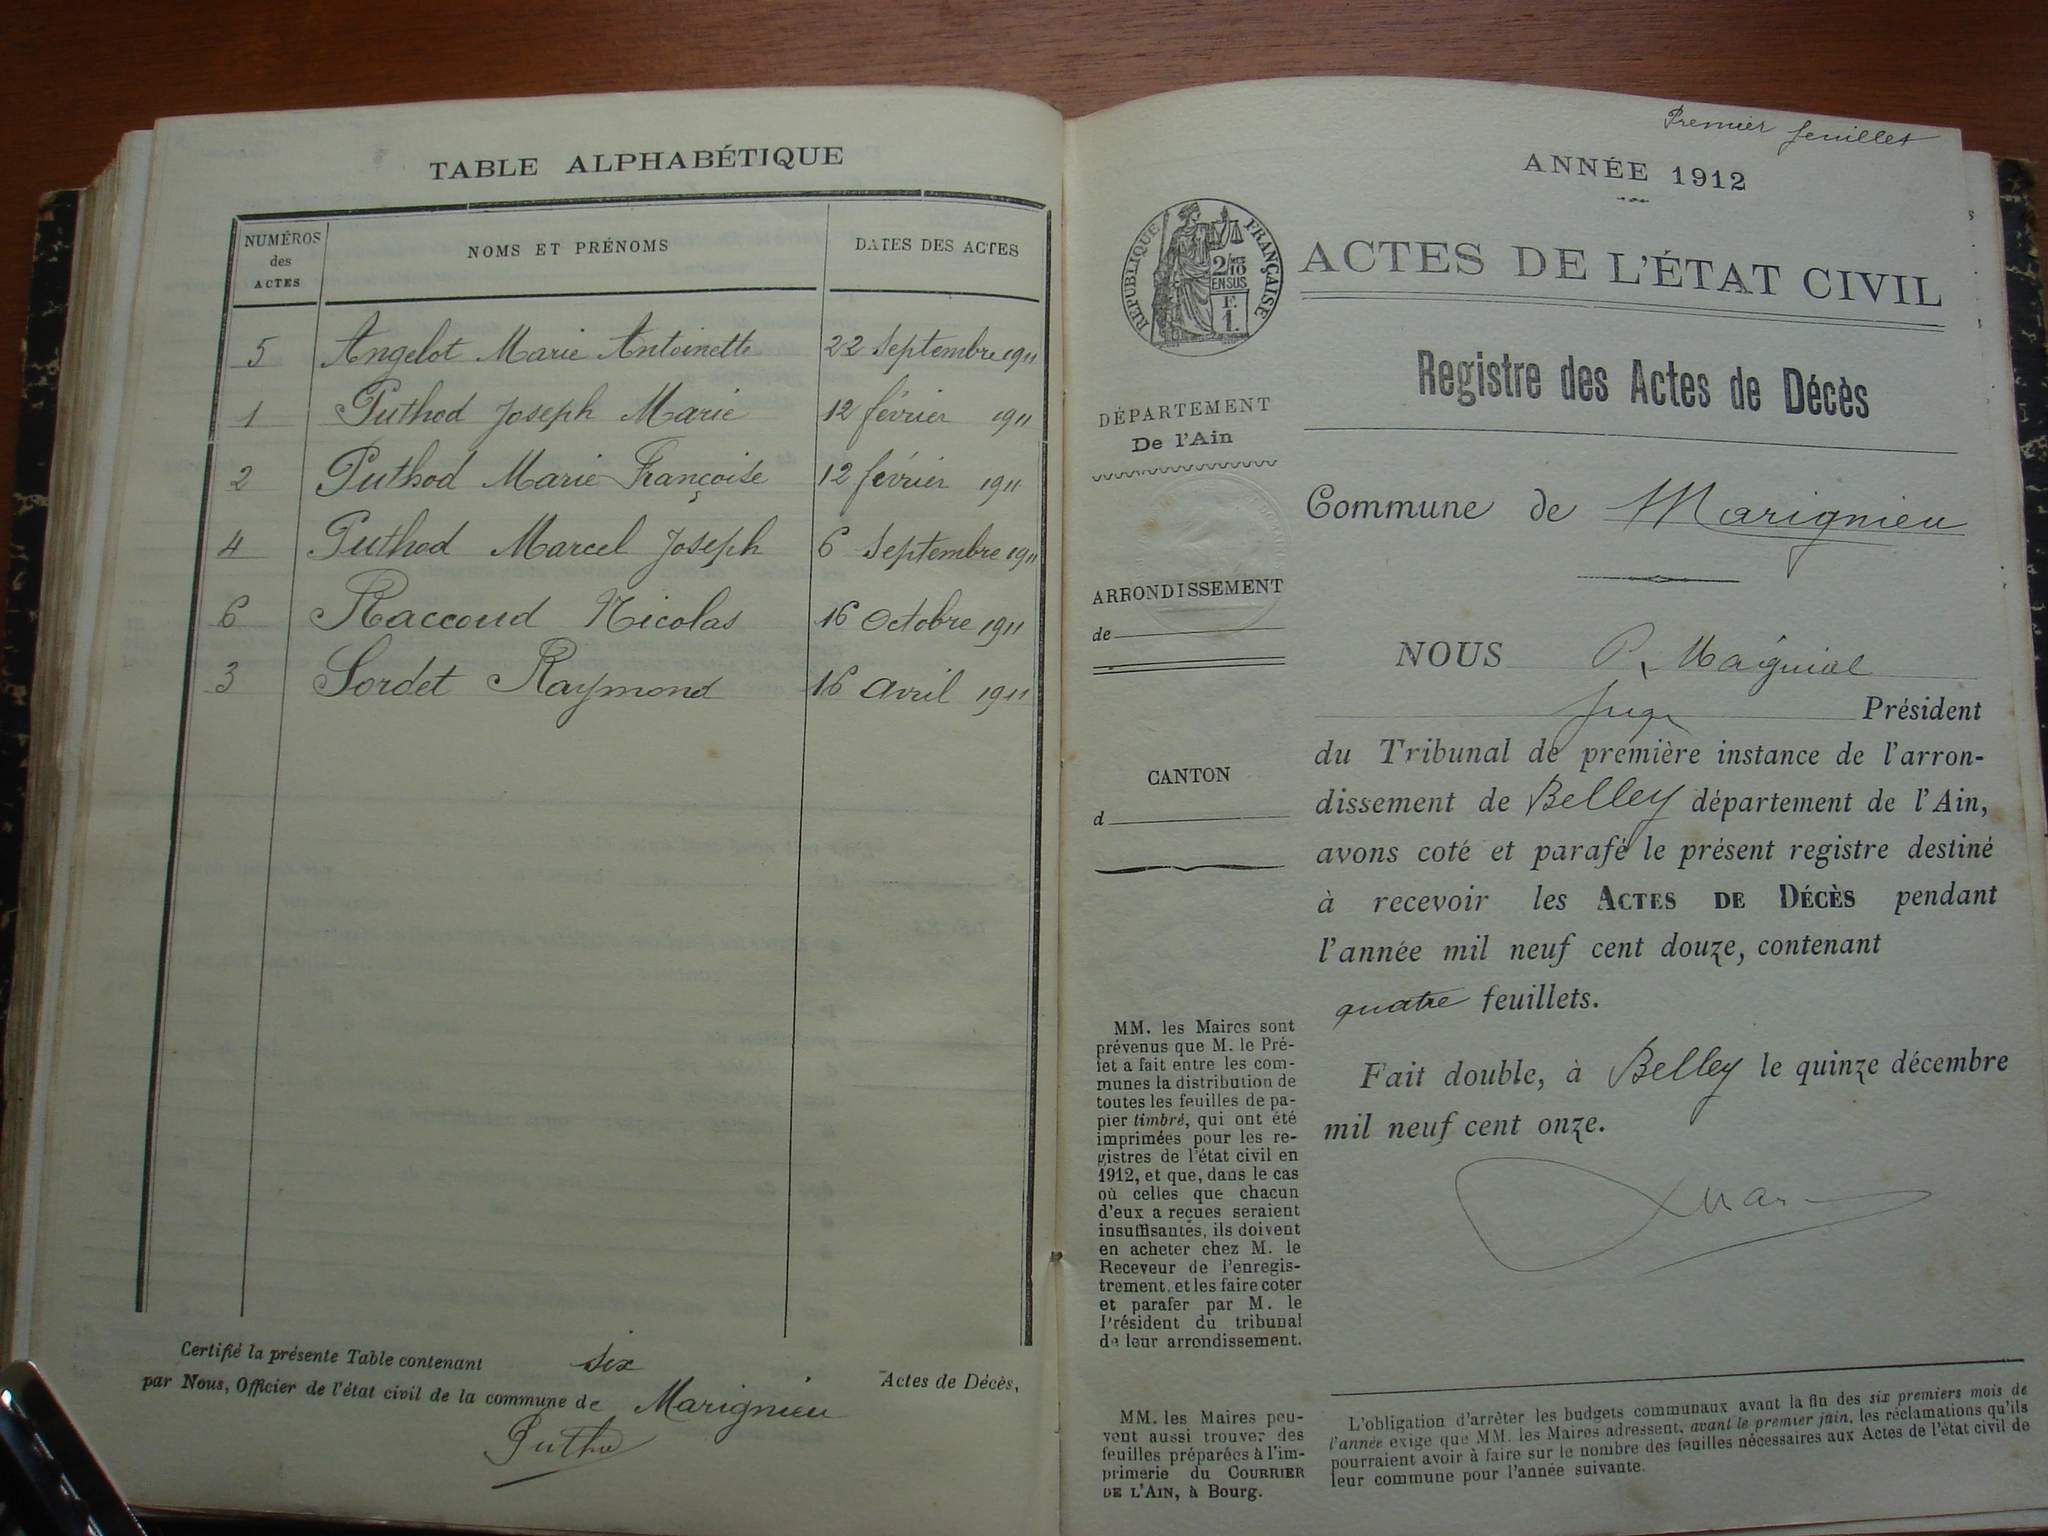 TABLE ALPHABÉTIQUE
NUMÉROS des ACTES
NOMS ET PRÉNOMS
DATES DES ACTES
5 Angelot Marie Antoinette 22 Septembre 1911
1 Puthod Joseph Marie 12 février 1911
2 Puthod Marie Françoise 12 février 1911
4 Puthod Marcel Joseph 6 Septembre 1911
6 Raccoud Nicolas 16 Octobre 1911
3 Sordet Raymond 16 avril 1911
Certifié la présente Table contenant six Actes de Décès,
par Nous, Officier de l'état civil de la commune de Marignieu
Premier feuillet
ANNÉE 1912
RÉPUBLIQUE FRANÇAISE
2/10
EN SUS
F.
1.
ACTES DE L'ÉTAT CIVIL
Registre des Actes de Décès
DÉPARTEMENT
De l'Ain
Commune de Marignieu
ARRONDISSEMENT
de
CANTON
d
NOUS P.
Juge Président
du Tribunal de première instance de l'arron-
dissement de Belley département de l'Ain,
avons coté et parafé le présent registre destiné
à recevoir les ACTES DE DÉCÈS pendant
l'année mil neuf cent douze, contenant
quatre feuillets.
Fait double, à Belley le quinze décembre
mil neuf cent onze.
MM. les Maires sont
prévenus que M. le Pré-
fet a fait entre les com-
munes la distribution de
toutes les feuilles de pa-
pier timbré, qui ont été
imprimées pour les re-
gistres de l'état civil en
1912, et que, dans le cas
où celles que chacun
d'eux a reçues seraient
insuffisantes, ils doivent
en acheter chez M. le
Receveur de l'enregis-
trement, et les faire coter
et parafer par M. le
Président du tribunal
de leur arrondissement.
MM. les Maires peu-
vent aussi trouver des
feuilles préparées à l'im-
primerie du COURRIER
DE L'AIN, à Bourg.
L'obligation d'arrêter les budgets communaux avant la fin des six premiers mois de
l'année exige que MM. les Maires adressent, avant le premier juin, les réclamations qu'ils
pourraient avoir à faire sur le nombre des feuilles nécessaires aux Actes de l'état civil de
leur commune pour l'année suivante.